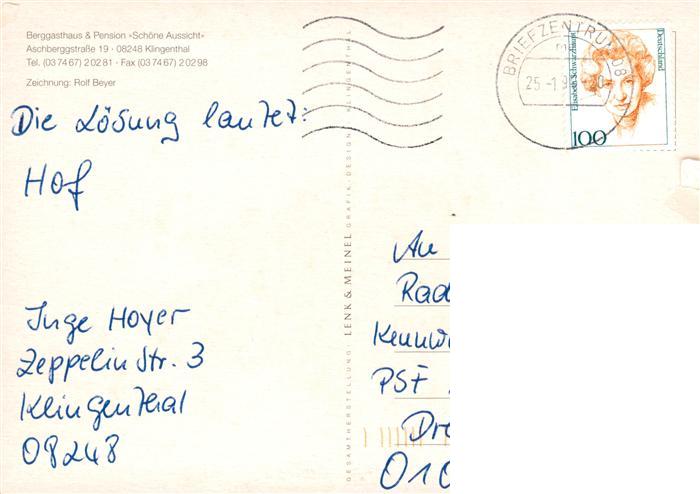 Berggasthaus & Pension »Schöne Aussicht«
Aschbergstraße 19 · 08248 Klingenthal
Tel. (03 74 67) 2 02 81 · Fax (03 74 67) 2 02 98
Zeichnung: Rolf Beyer
Die Lösung lautet:
Hof
Inge Hoyer
Zeppelinstr. 3
Klingenthal
08248
GESAMTHERSTELLUNG: LENK & MEINEL GRAFIK-DESIGN KLINGENTHAL
BRIEFZENTRUM 08
25 -1
Deutschland
Elisabeth Schwarzhaupt
100
An
Rad
Kennw
PSF
Dre
010